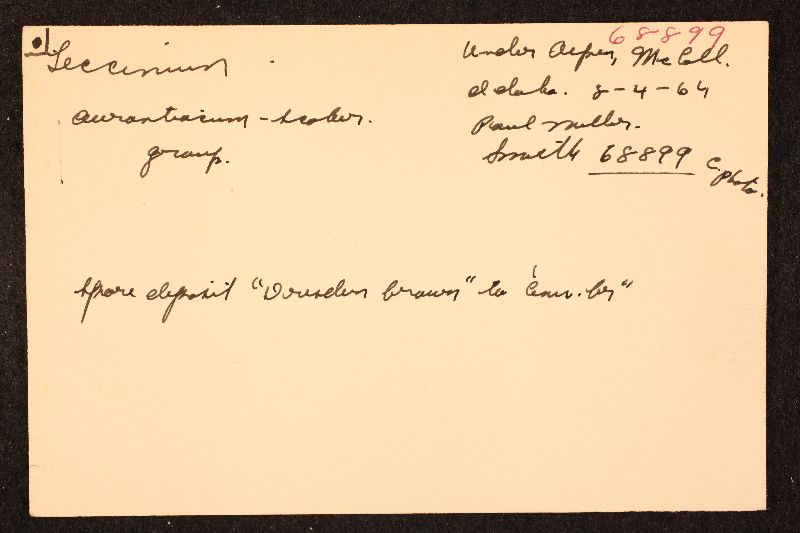 68899
Leccinum
Under Aspen, McCall.
aurantiacum - scaber.
Idaho. 8-4-64
group.
Paul Miller.
Smith 68899 C. Photo.
Spore deposit "Dresden brown" to